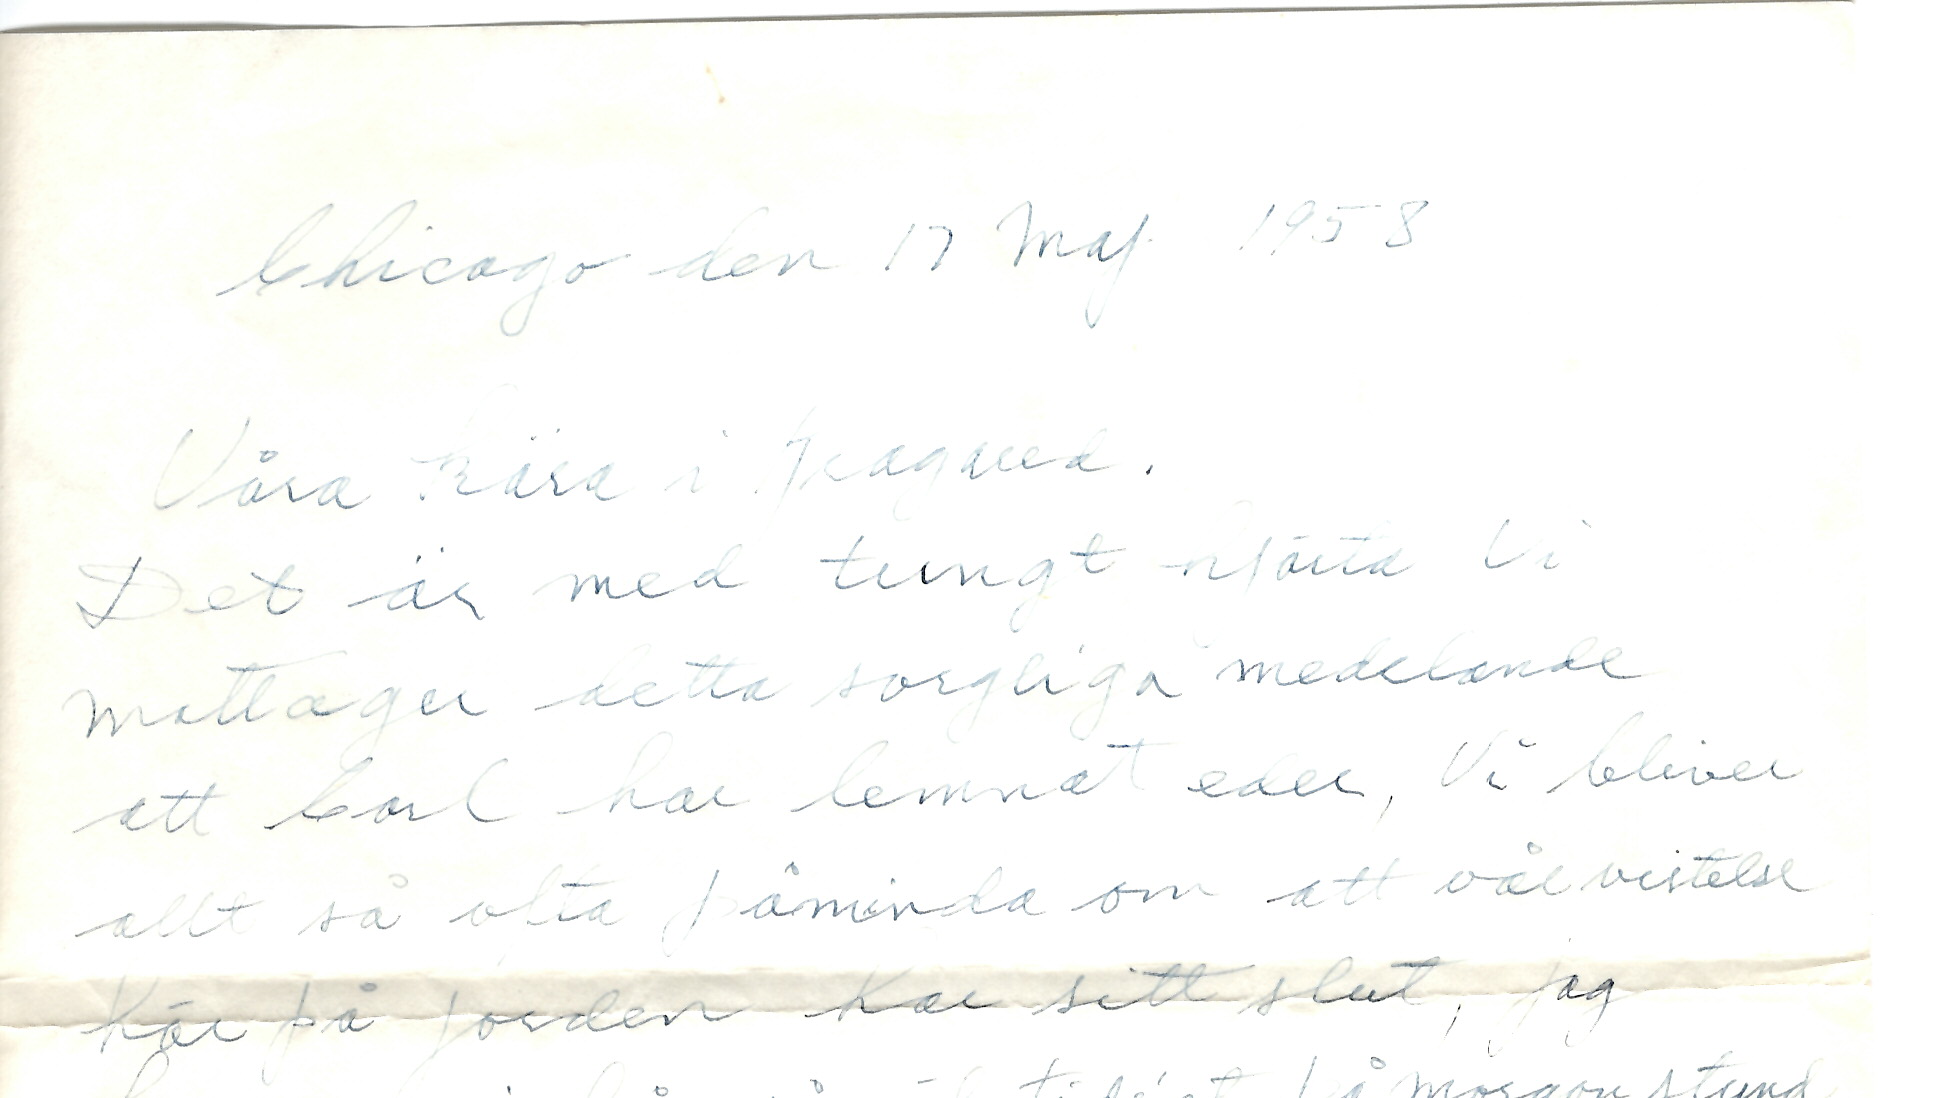 Chicago den 17 Maj. 1958
Våra kära i
Det är med tungt hjärta Vi
mottager detta sorgliga medelande
att Carl har lemnat eder, Vi bliver
allt så ofta påminda om att vår vistelse
här på jorden har sitt slut, jag
på morgon stund